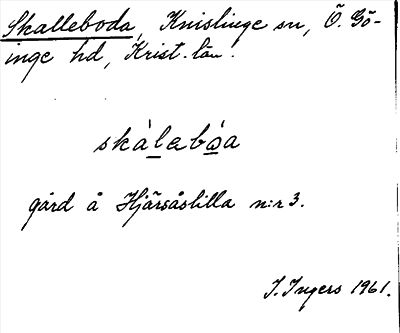 Skalleboda, Knislinge sn, Ö. Gö-
inge hd, Krist. län.
skàlabòa
gård å Hjärsåslilla n:r 3.
I. Ingers 1961.